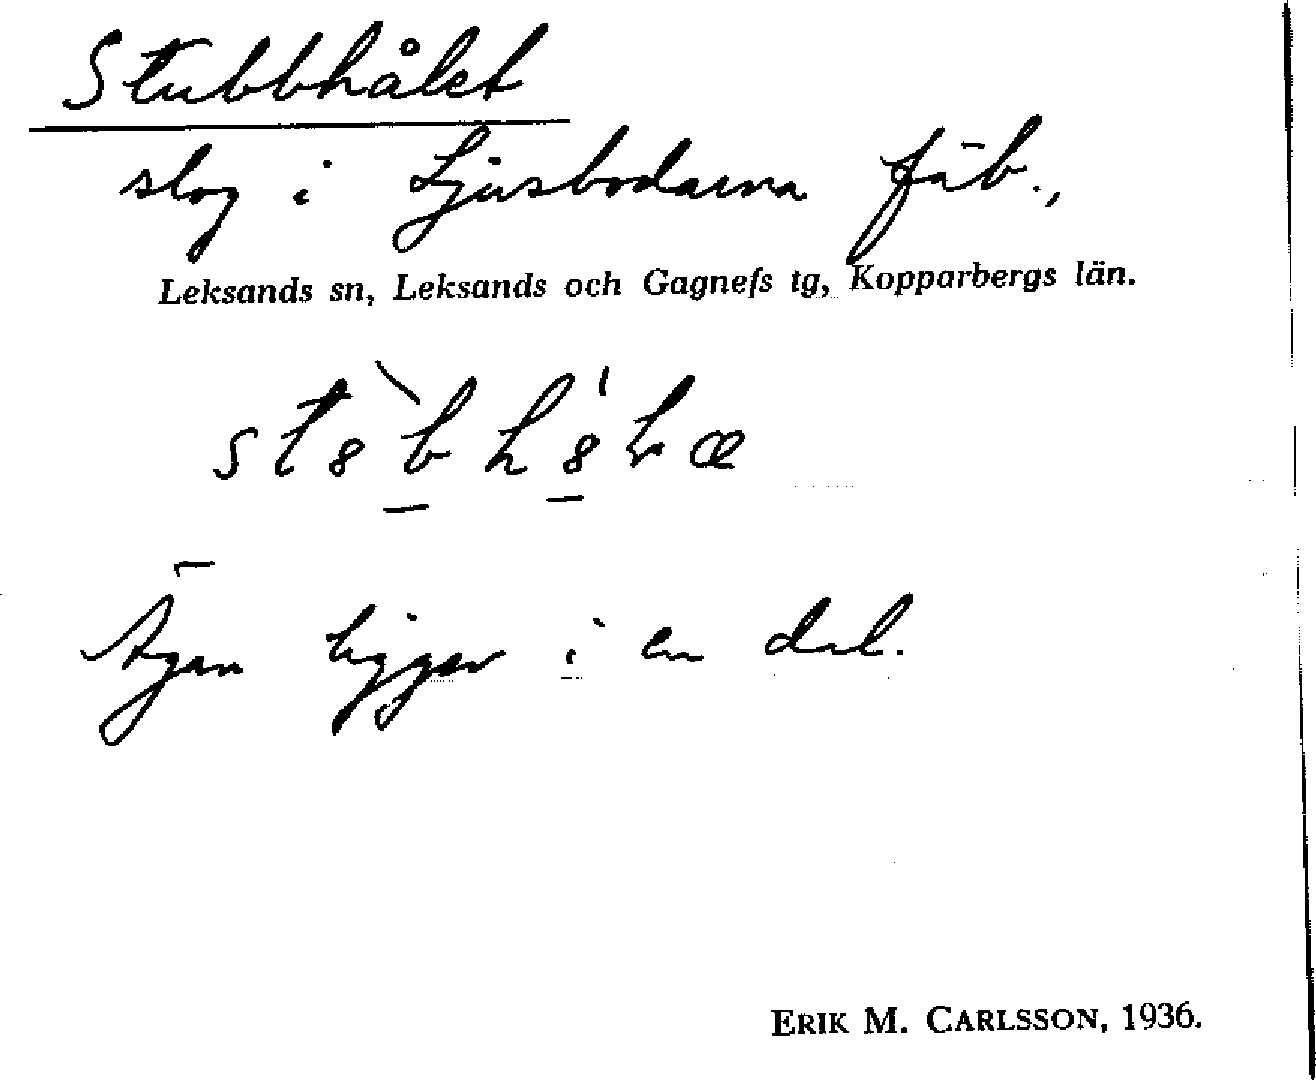 Stubbhålet
slog i Ljusbodarna fäb.,
Leksands sn, Leksands och Gagnefs tg, Kopparbergs län.
Ägan ligger i en dal.
ERIK M. CARLSSON, 1936.